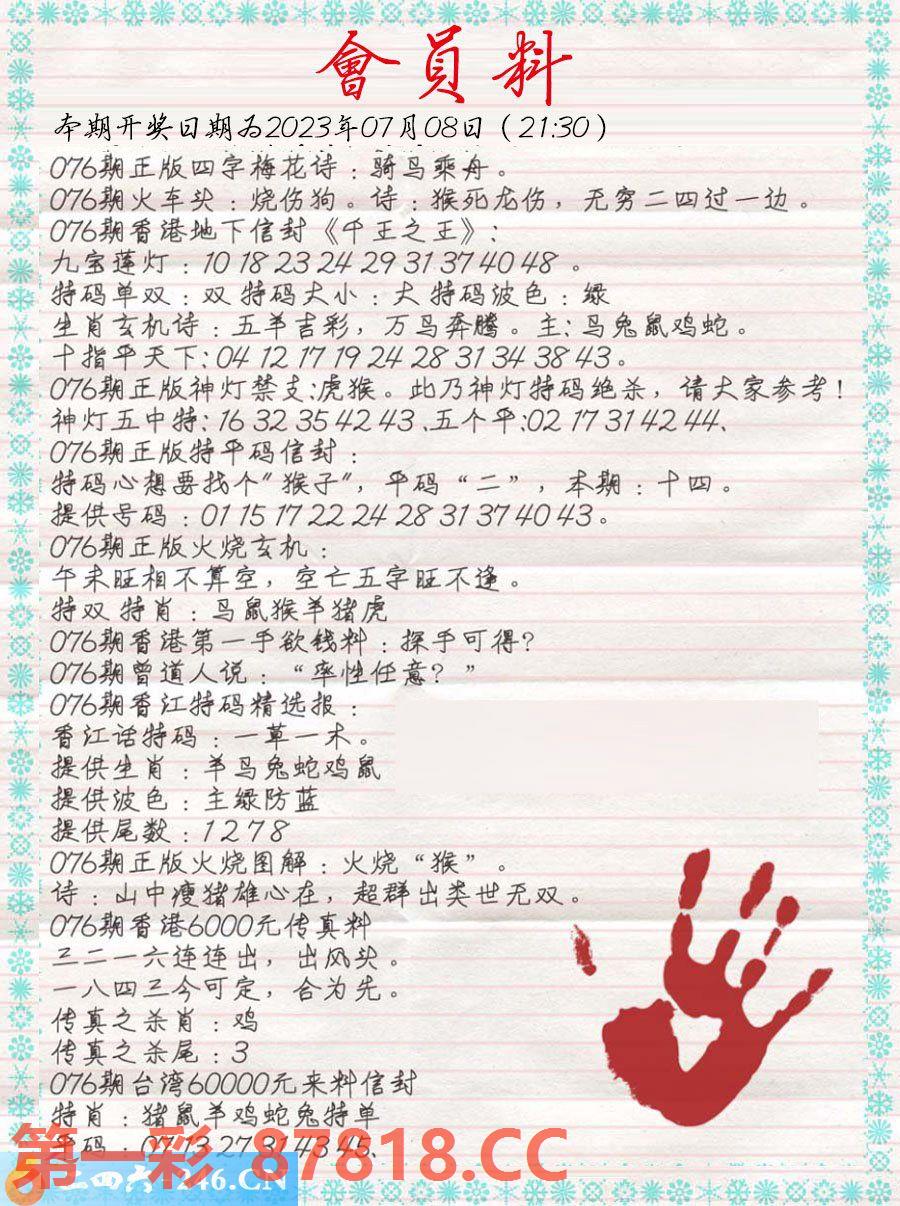 會員料
本期开奖日期为2023年07月08日（21:30）
076期正版四字梅花诗：骑鸟乘舟。
076期火车头：烧伤狗。诗：猴死龙伤，无穷二四过一边。
076期香港地下信封《千王之王》：
九宝莲灯：10 18 23 24 29 31 37 40 48 。
特码单双：双 特码大小：大 特码波色：绿
生肖玄机诗：五羊吉彩，万鸟奔腾。主：鸟兔鼠鸡蛇。
十指平天下：04 12 17 19 24 28 31 34 38 43。
076期正版神灯禁支:虎猴。此乃神灯特码绝杀，请大家参考！
神灯五中特：16 32 35 42 43 、五个平:02 17 31 42 44、
076期正版特平码信封：
特码心想要找个"猴子"，平码“二”，本期：十四。
提供号码：01 15 17 22 24 28 31 37 40 43。
076期正版火烧玄机：
午未旺相不算空，空亡五字旺不逢。
特双 特肖：鸟鼠猴羊猪虎
076期香港第一手欲钱料：探手可得？
076期曾道人说：“率性任意？”
076期香江特码精选报：
香江话特码：一草一木。
提供生肖：羊鸟兔蛇鸡鼠
提供波色：主绿防蓝
提供尾数：1 2 7 8
076期正版火烧图解：火烧“猴”。
诗：山中瘦猪雄心在，超群出类世无双。
076期香港6000元传真料
三二一六连连出，出风头。
一八四三今可定，合为先。
传真之杀肖：鸡
传真之杀尾：3
076期台湾60000元来料信封
特肖：猪鼠羊鸡蛇兔特单
平码：07 13 27 31 43 45、
第一彩 87818.CC
二四六 246.CN